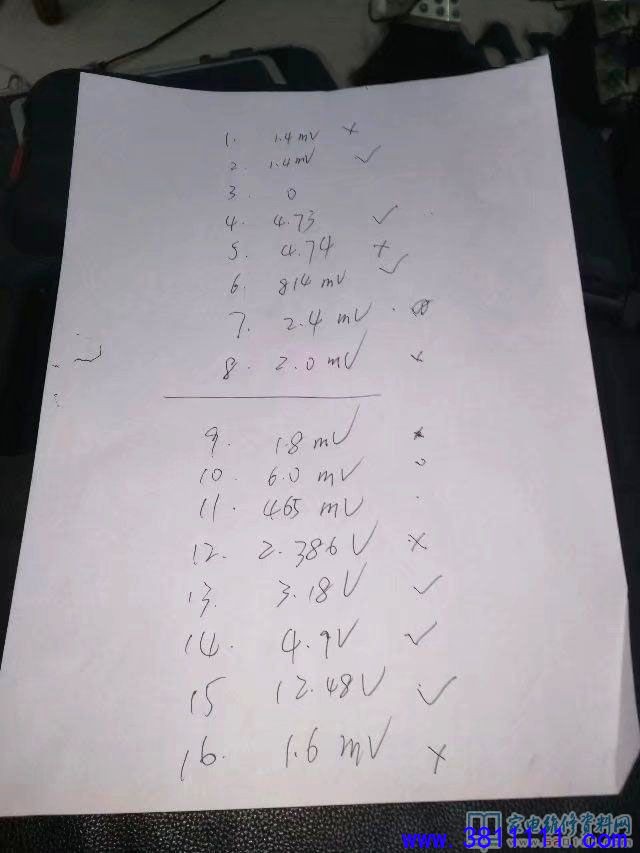 1. 1.4 mV ×
2. 1.4 mV ✓
3. 0
4. 4.73 ✓
5. 4.74 ×
6. 814 mV ✓
7. 2.4 mV
8. 2.0 mV ×
9. 1.8 mV ×
10. 6.0 mV 0
11. 465 mV
12. 2.386 V ×
13. 3.18 V ✓
14. 4.9V ✓
15 12.48V ✓
16. 1.6 mV ×
家电维修资料网
www.3811111.com